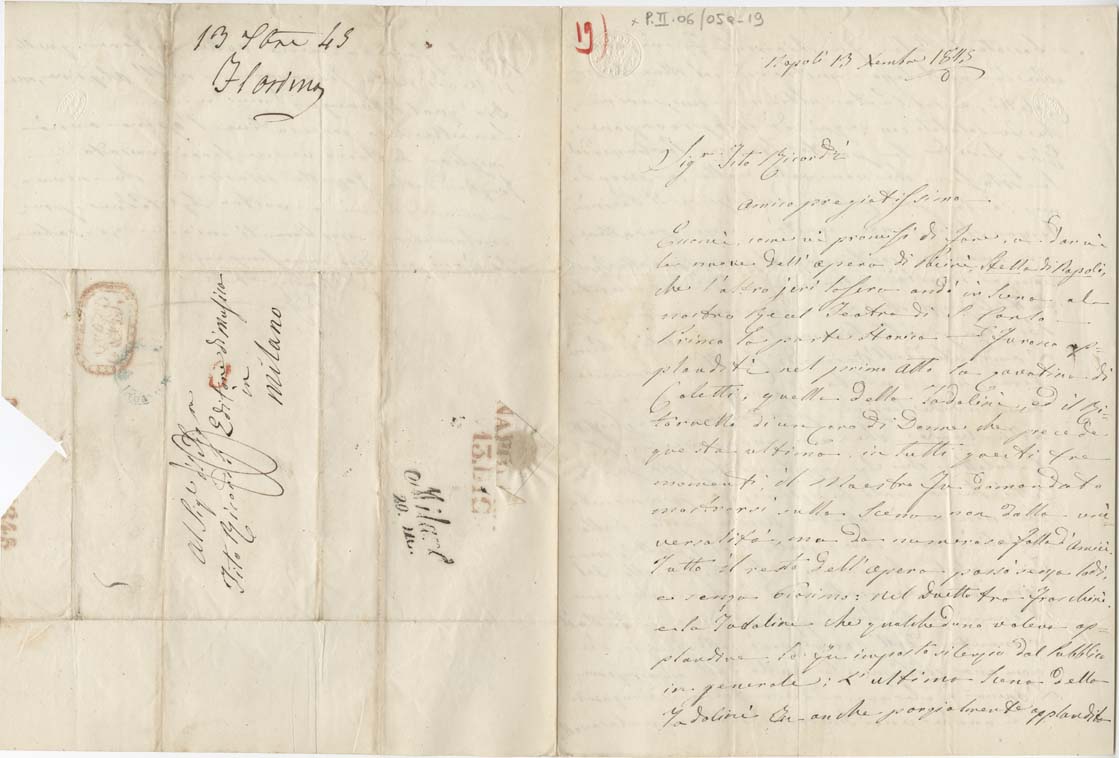 13 Xbre 45
Florimo
Al Sigr
Tito Ricordi
Editore di Musica
in
Milano
NAPOLI
13 DIC
Milano
20. Dic.
19)
P.II.06/05a-19
Napoli 13 Xembre 1845
Sigr Tito Ricordi
Amico pregiatissimo
Eccomi, come vi promisi di fare, a darvi
le nuove dell'opera di Pacini, Stella di Napoli,
che l'altro jeri la sera andò in scena al
nostro Real Teatro di S. Carlo —
Prima la parte storica — Furono ap-
plauditi nel primo atto la cavatina di
Coletti, quella della Tadolini, ed il Ri-
tornello di un coro di Donne che precede
questa ultima, in tutti questi tre
momenti, il Maestro fu domandato
mostrarsi sulla Scena, non dalla uni-
versalità, ma da numerosa folla d'Amici.
Tutto il resto dell'opera passò senza lodi,
e senza biasimo: nel Duetto tra Fraschini
e la Tadolini che qualcheduno voleva ap-
plaudire le fu imposto silenzio dal Pubblico
in generale; L'ultima Scena della
Tadolini fu anche parzialmente applaudita